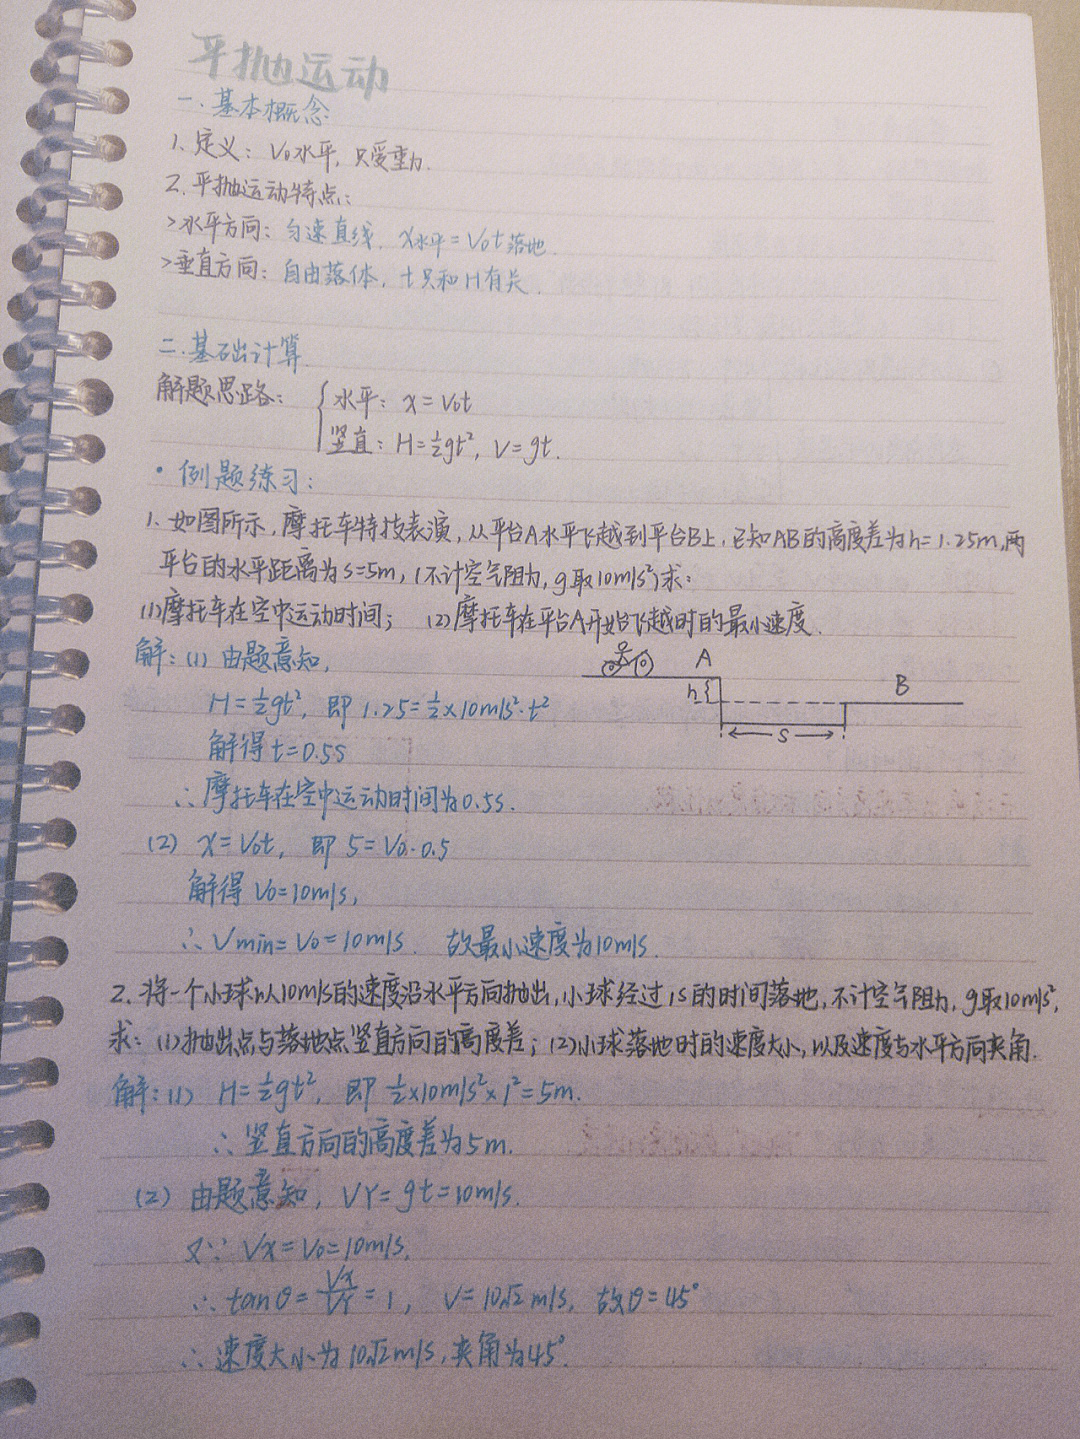 平抛运动
一.基本概念
1、定义：V0水平，只受重力.
2、平抛运动特点：
>水平方向：匀速直线. x水平=V0t落地.
>垂直方向：自由落体，t只和H有关.
二.基础计算
解题思路：{水平：x=V0t
竖直：H=½gt²，V=gt.
·例题练习：
1、如图所示，摩托车特技表演，从平台A水平飞越到平台B上，已知AB的高度差为h=1.25m，两
平台的水平距离为s=5m，(不计空气阻力，g取10m/s²)求：
(1)摩托车在空中运动时间； (2)摩托车在平台A开始飞越时的最小速度.
解：(1) 由题意知，
A
h
B
S
H=½gt²，即1.25=½×10m/s²·t²
解得t=0.5s
∴摩托车在空中运动时间为0.5s.
(2) x=V0t，即5=V0·0.5
解得V0=10m/s，
∴Vmin=V0=10m/s. 故最小速度为10m/s.
2、将一个小球以10m/s的速度沿水平方向抛出，小球经过1s的时间落地，不计空气阻力，g取10m/s²，
求：(1)抛出点与落地点竖直方向的高度差；(2)小球落地时的速度大小，以及速度与水平方向夹角.
解：(1) H=½gt²，即½×10m/s²×1²=5m.
∴竖直方向的高度差为5m.
(2) 由题意知，VY=gt=10m/s.
又∵Vx=V0=10m/s.
∴tanθ=Vx/VY=1，V=10√2m/s，故θ=45°
∴速度大小为10√2m/s，夹角为45°.